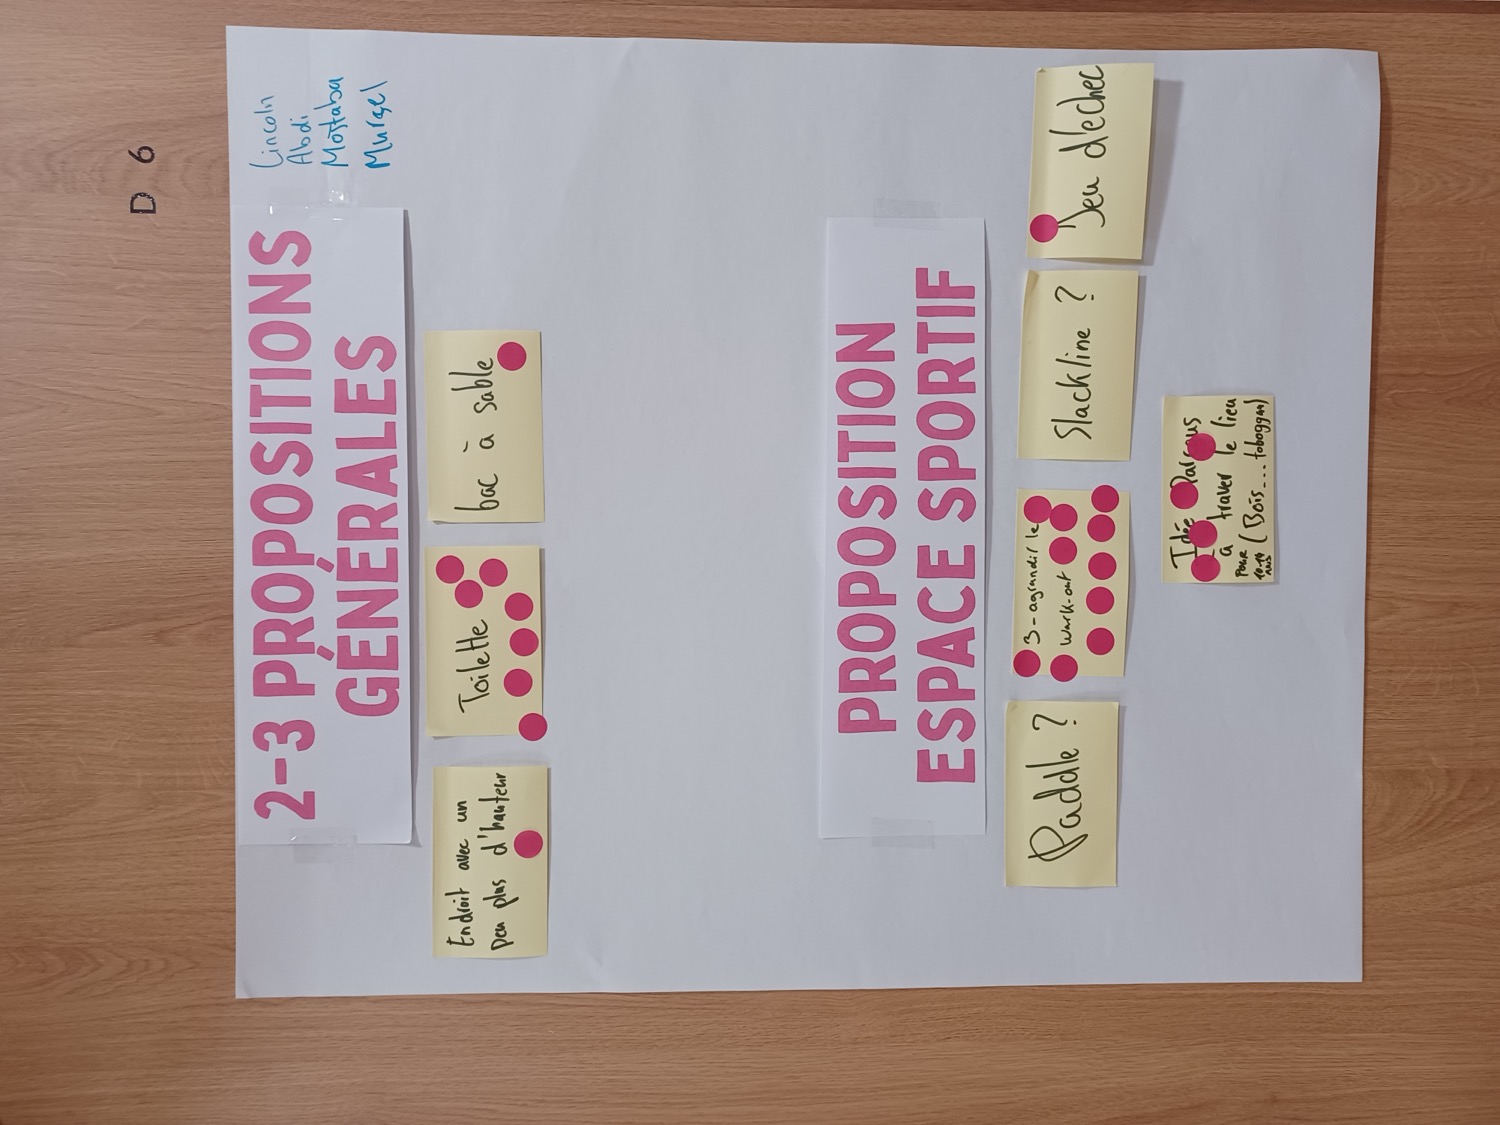 D 6
Lincoln
Abdi
Mojtaba
Mursel
2-3 PROPOSITIONS
GÉNÉRALES
Endroit avec un
peu plus d'hauteur
Toilette
bac à sable
PROPOSITION
ESPACE SPORTIF
Paddle ?
3-agrandir le
work-out
Slackline ?
Jeu d'echec
Idée
a traver le lieu
Pour (Bois...toboggan)
10-14
ans